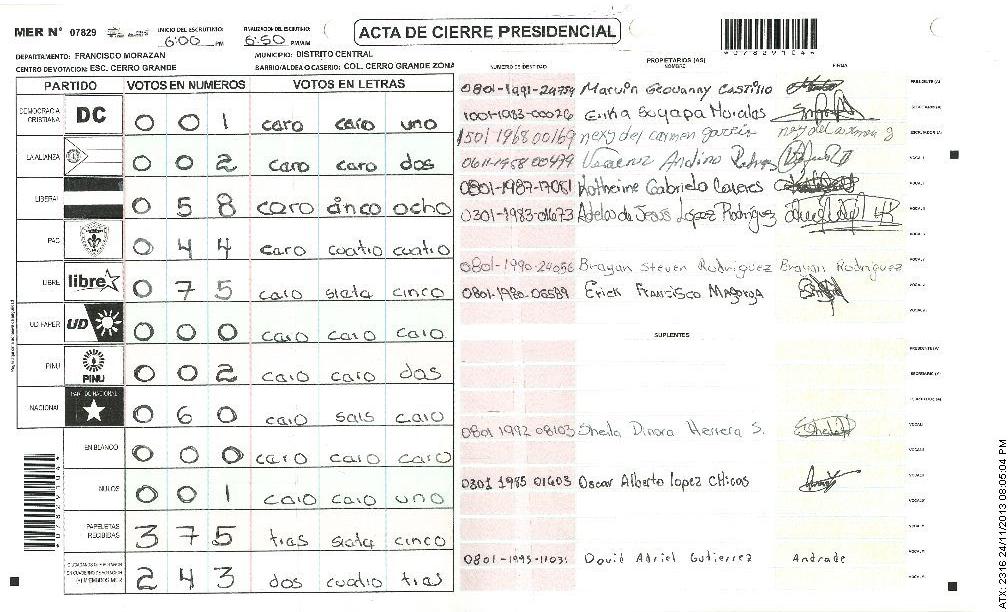 MER N° 07829
INICIO DEL ESCRUTINIO: 6:00 PM
FINALIZACION DEL ESCRUTINIO: 6:50 PM/AM
ACTA DE CIERRE PRESIDENCIAL
*07829104*
DEPARTAMENTO: FRANCISCO MORAZAN
MUNICIPIO: DISTRITO CENTRAL
CENTRO DE VOTACION: ESC. CERRO GRANDE
BARRIO/ALDEA O CASERIO: COL. CERRO GRANDE ZONA
PARTIDO VOTOS EN NUMEROS VOTOS EN LETRAS
DEMOCRACIA CRISTIANA DC 0 0 1 cero cero uno
LA ALIANZA 0 0 2 cero cero dos
LIBERAL 0 5 8 cero cinco ocho
PAC 0 4 4 cero cuatro cuatro
LIBRE libre 0 7 5 cero siete cinco
UD FAPER UD 0 0 0 cero cero cero
PINU PINU 0 0 2 cero cero dos
NACIONAL PARTIDO NACIONAL 0 6 0 cero seis cero
EN BLANCO 0 0 0 cero cero cero
NULOS 0 0 1 cero cero uno
PAPELETAS RECIBIDAS 3 7 5 tres siete cinco
2 4 3 dos cuatro tres
NUMERO DE IDENTIDAD PROPIETARIOS (AS) NOMBRE FIRMA
0801-1991-24759 Marvin Geovanny Castillo
1001-1983-00026 Erika Suyapa Morales
1501 1968 00169 nexy del carmen garcia
0611-1958 00479 Veracruz Andino
0801-1987-17081 Katherine Gabriela Caceres
0301-1983-01673 Adela de Jesus Lopez Rodriguez
0801-1990-24056 Brayan Steven Rodriguez Brayan Rodriguez
0801-1980-06589 Erick Francisco
SUPLENTES
0801 1992 08103 Sheila Dinora Herrera S.
0301 1985 01603 Oscar Alberto Lopez Chicas
0801-1995-1103 David Adriel Gutierrez Andrade
*07829104*
ATX: 2316 24/11/2013 08:05:04 PM